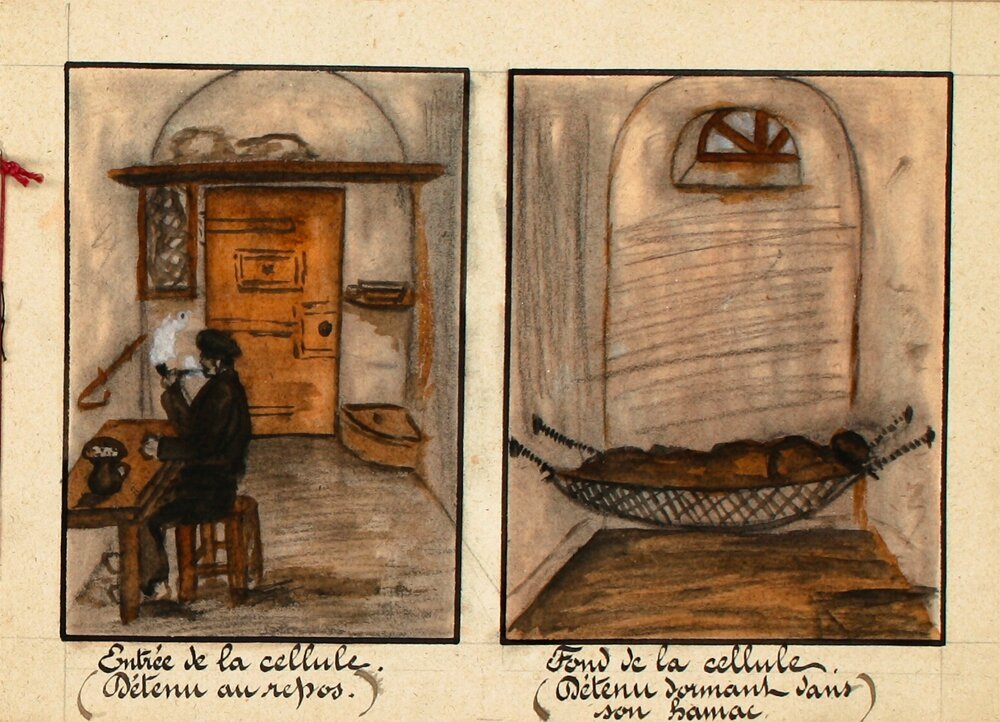 Entrée de la cellule.
(Détenu au repos.)
Fond de la cellule.
(Détenu dormant dans
son hamac.)